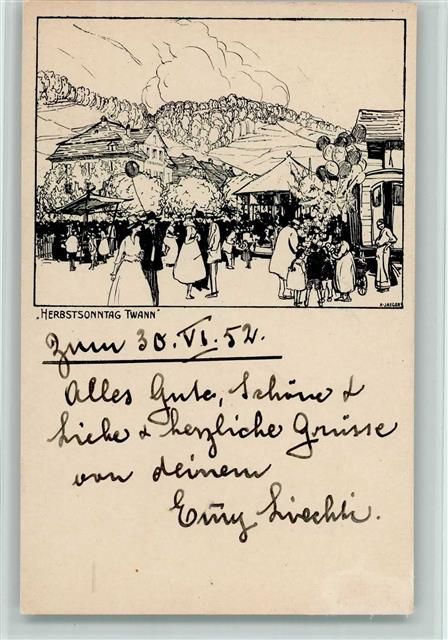 K. JAEGER
„HERBSTSONNTAG TWANN"
Zum 30. VI. 52.
Alles Gute, Schöne &
Liebe & herzliche Grüsse
von deinem
Emy Liechti.